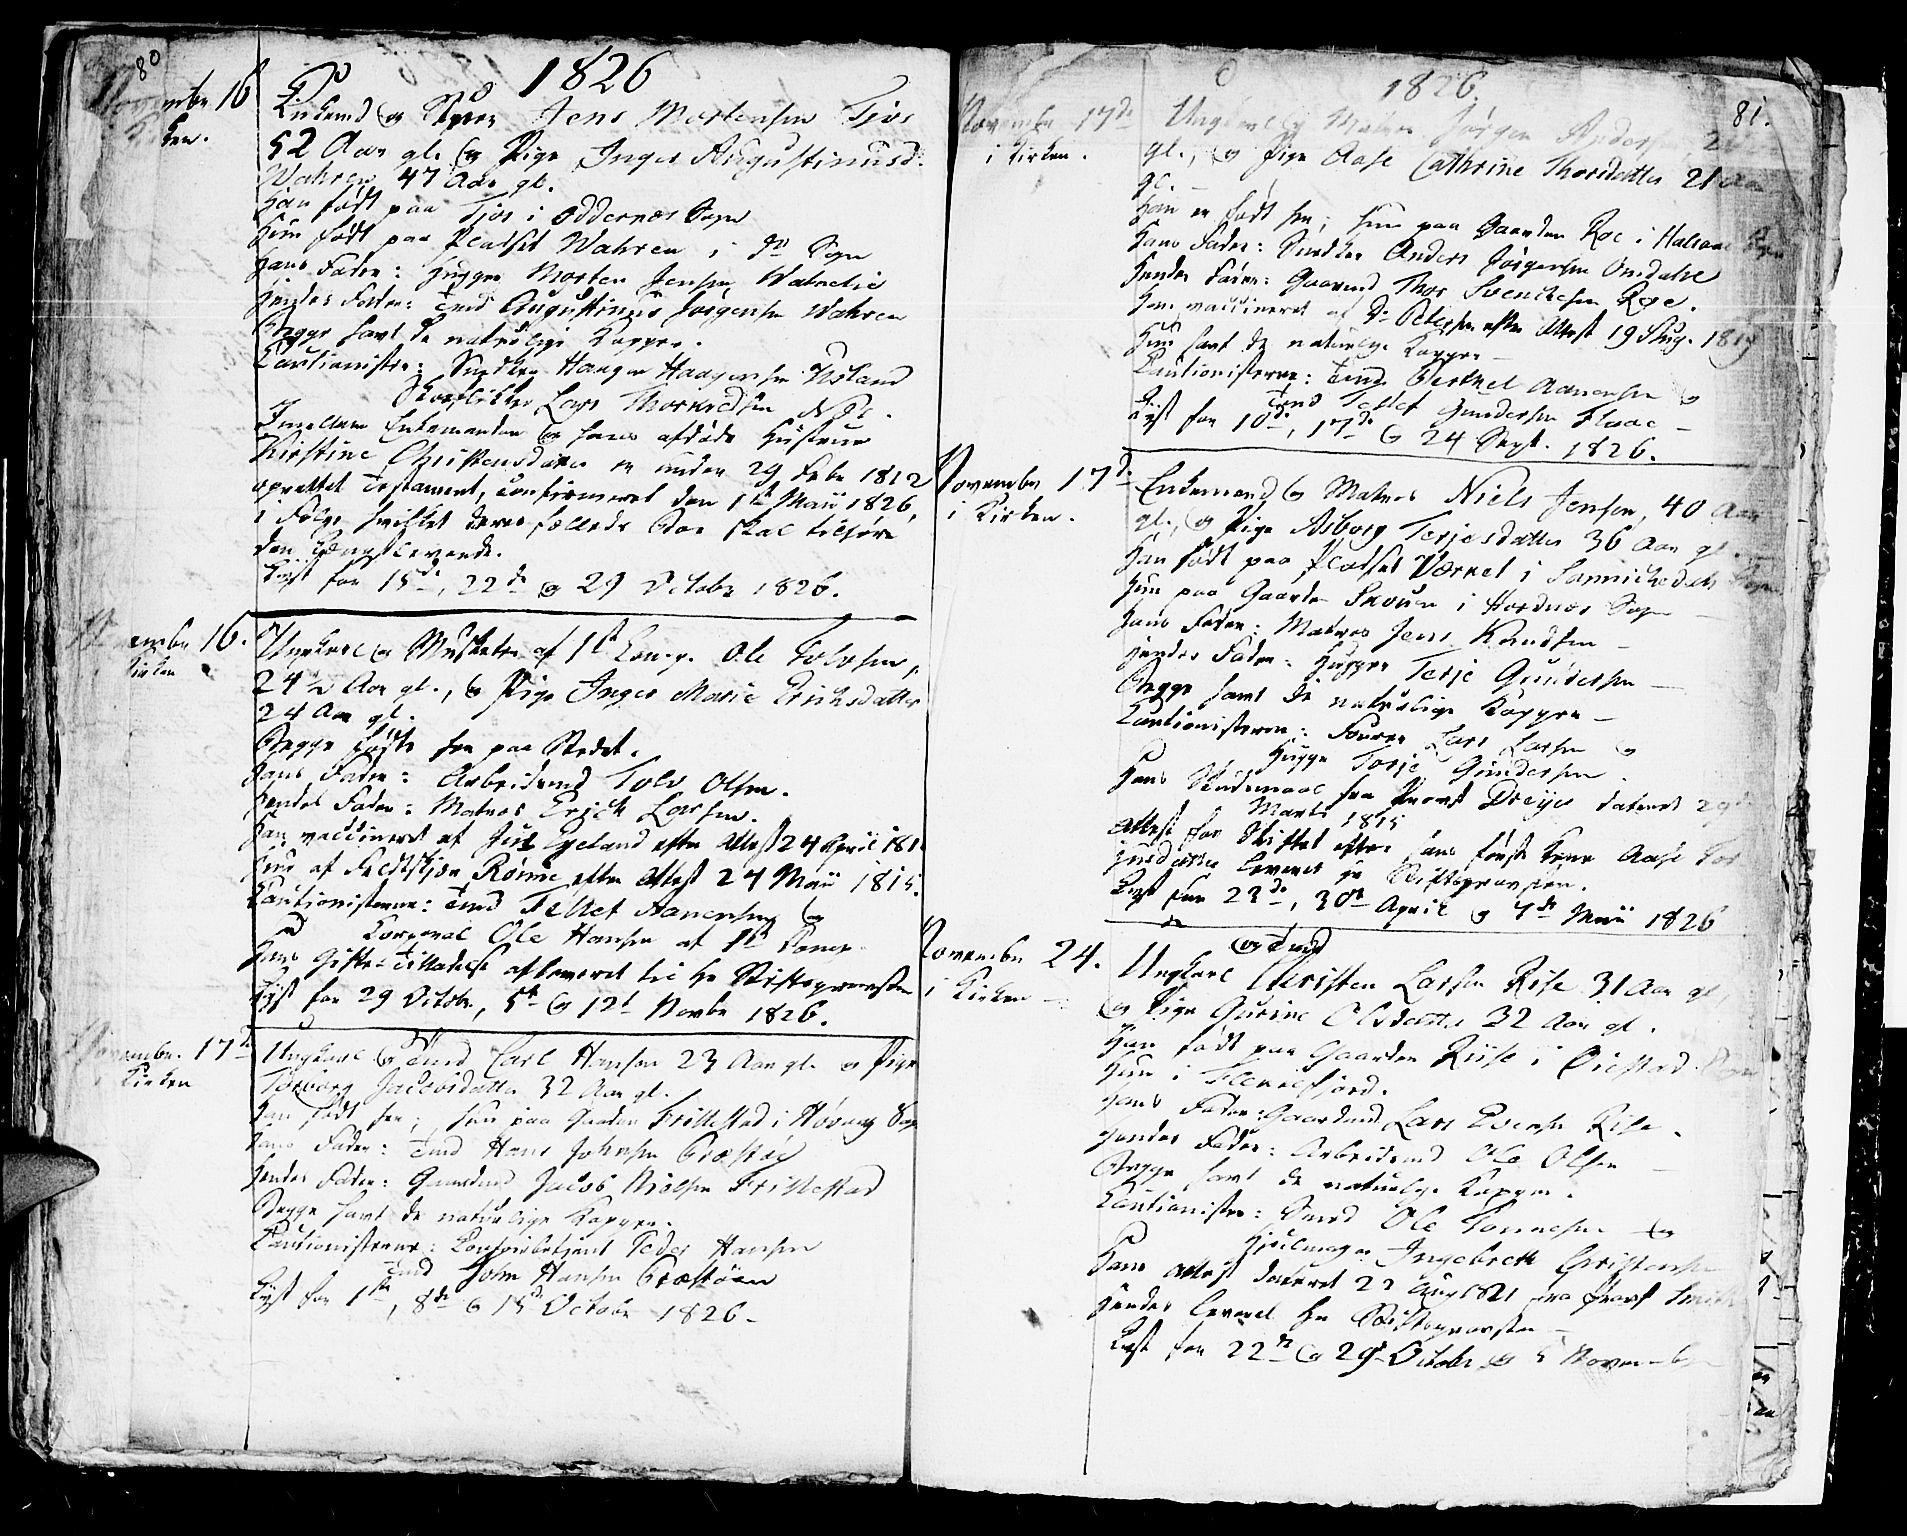 80
1826
November 16
i Kirken.
Enkemd og Skipper Jens Mortensen Tjos
52 Aar gl. og Pige Inger Augustinusd.
Wahren 47 Aar gl.
Han født paa Tjos i Oddernæs Sogn
Hun født paa Pladset Wahren i do Sogn
Hans Fader: Hugger Morten Jensen
Hendes Fader: Tmd Augustinus Jørgensen Wahren
Begge havt de naturlige Kopper.
Cautionister: Snedker Haagen Haagensen Usland
Skoeflikker Lars Thorkeldsen
Imellem Enkemanden og hans afdøde Hustrue
Kirstine Christensdatter er under 29 Febr 1812
oprettet Testament, confirmeret den 1ste Maii 1826,
i Følge hvilket deres fælleds Boe skal tilhøre
den Længstlevende.
Lyst for 15de, 22de og 29 October 1826.
November 16.
i Kirken
Ungkarl og Musketer af 1ste Comp. Ole Tolvsen,
24½ Aar gl., og Pige Inger Marie Erichsdatter
24 Aar gl.
Begge fødte her paa Stedet.
Hans Fader: Arbeidsmd Tolv Olsen.
Hendes Fader: Matros Erich Larsen.
Han vaccineret af Egeland efter Attest 24 April 181
hun af Feldtskjær Rønne efter Attest 24 Maii 1815.
Cautionisterne: Tmd Tellef Aanensen og
Korporal Ole Hansen af 1ste Comp.
Hans Gifte-Tilladelse afleveret til Hr Stiftsprovsten
Lyst for 29 Octobr, 5te og 12te Novbr 1826.
November 17de
i Kirken
Ungkarl og Tmd Carl Hansen 23 Aar gl. og Pige
Torborg Jacobsdatter 32 Aar gl.
Han født her; hun paa Gaarden Fristestad i Høvaag Sogn
Hans Fader: Tmd Hans Johnsen Græsøe
Hendes Fader: Gaardmd Jacob Nielsen Fristestad
Begge havt de naturlige Kopper.
Cautionisterne: Peder Hansen
Tmd John Hansen Græsøen
Lyst for 1ste, 8de og 15de October 1826.
81.
1826.
November 17de
i Kirken.
Ungkarl og Matros Jørgen Anders
gl., og Pige Aase Cathrine Thorsdatter 21 Aar
gl.
Han er født her; hun paa Gaarden Roe i Halsaae Sogn
Hans Fader: Snedker Anders Jørgensen Omdahl
Hendes Fader: Gaardmd Thor Svenichsen Roe.
Han vaccineret af Dr Petersen efter Attest 19 Aug. 1819
Hun havt de naturlige Kopper
Cautionisterne: Tmd Berthel Aanensen og
Tmd Tellef Gundersen Flaae
Lyst for 10de, 17de og 24 Sept. 1826.
November 17de
i Kirken.
Enkemand og Matros Niels Jensen, 40 Aar
gl., og Pige Asborg Terjesdatter 36 Aar gl.
Han født paa Pladset Værket i Sannichedals Sogn
Hun paa Gaarden Skouen i Hordnæs Sogn
Hans Fader: Matros Jens Knudsen
Hendes Fader: Hugger Terje Gundersen
Begge havt de naturlige Kopper
Cautionisterne: Lars Larsen og
Hugger Torje Gundersen.
Hans Skudsmaal fra Provst Dreyer dateret 29de
Marts 1815
Attest for Skiftet efter hans første Kone Aase Tor
jusdatter leveret Hr Stiftsprovsten.
Lyst for 23de, 30te April og 7de Maii 1826
November 24.
i Kirken
og Tmd
Ungkarl Christen Larsen Rise 31 Aar gl,
og Pige Gurine Olsdatter 32 Aar gl.
Han født paa Gaarden Riise i Øiestad Sogn
Hun i Flekkefjord.
Hans Fader: Gaardmd Lars Evensen Rise.
Hendes Fader: Arbeidsmd Ole Olsen
Begge havt de naturlige Kopper.
Cautionister: Smed Ole Tønnesen og
Hjulmager Ingebreth Christensen
Hans Attest dateret 22 Aug 1821 fra Provst Smith
Hendes leveret Hr Stiftsprovsten
Lyst for 22de og 29de Octobr og 5 November